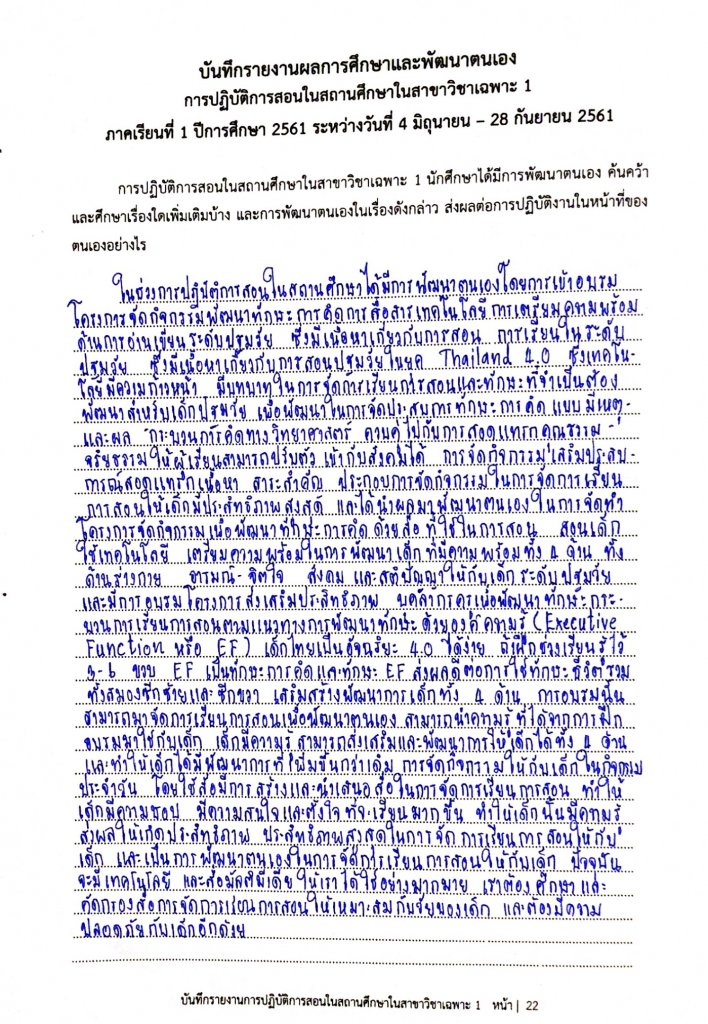 บันทึกรายงานผลการศึกษาและพัฒนาตนเอง
การปฏิบัติการสอนในสถานศึกษาในสาขาวิชาเฉพาะ 1
ภาคเรียนที่ 1 ปีการศึกษา 2561 ระหว่างวันที่ 4 มิถุนายน – 28 กันยายน 2561
การปฏิบัติการสอนในสถานศึกษาในสาขาวิชาเฉพาะ 1 นักศึกษาได้มีการพัฒนาตนเอง ค้นคว้า
และศึกษาเรื่องใดเพิ่มเติมบ้าง และการพัฒนาตนเองในเรื่องดังกล่าว ส่งผลต่อการปฏิบัติงานในหน้าที่ของ
ตนเองอย่างไร
ในช่วงการปฏิบัติการสอนในสถานศึกษาได้มีการพัฒนาตนเองโดยการเข้าอบรม
โครงการจัดกิจกรรมพัฒนาทักษะการคิดการสื่อสารเทคโนโลยีการเตรียมความพร้อม
ด้านการอ่านเขียนระดับปฐมวัย ซึ่งมีเนื้อหาเกี่ยวกับการสอน การเรียนในระดับ
ปฐมวัย ซึ่งมีเนื้อหาเกี่ยวกับการสอนปฐมวัยในยุค Thailand 4.0 ซึ่งเทคโน-
โลยีมีความก้าวหน้า มีบทบาทในการจัดการเรียนการสอนและทักษะที่จำเป็นต้อง
พัฒนาสำหรับเด็กปฐมวัย เพื่อพัฒนาในการจัดประสบการทักษะการคิด แบบมีเหตุ-
และผล กระบวนการคิดทางวิทยาศาสตร์ ควบคู่ไปกับการสอดแทรกคุณธรรม -
จริยธรรมให้ผู้เรียนสามารถปรับตัว เข้ากับสังคมได้ การจัดกิจกรรมเสริมประสบ-
การณ์สอดแทรกเนื้อหา สาระสำคัญ ประกอบการจัดกิจกรรมในการจัดการเรียน
การสอนให้เด็กมีประสิทธิภาพสูงสุด และได้นำผลมาพัฒนาตนเองในการจัดทำ
โครงการจัดกิจกรรมเพื่อพัฒนาทักษะการคิดด้วยสื่อ ที่ใช้ในการสอน สอนเด็ก
ใช้เทคโนโลยี เตรียมความพร้อมในการพัฒนาเด็กที่มีความพร้อมทั้ง 4 ด้าน ทั้ง
ด้านร่างกาย อารมณ์-จิตใจ สังคม และสติปัญญาให้กับเด็กระดับปฐมวัย
และมีการอบรมโครงการส่งเสริมประสิทธิภาพ บุคลากรครูเพื่อพัฒนาทักษะกระ-
บวนการเรียนการสอนตามแนวทางการพัฒนาทักษะ ด้วยองค์ความรู้ (Executive
Function หรือ EF) เด็กไทยเป็นอัจฉริยะ 4.0 ได้ง่าย ถ้าฝึกช่วงเรียนรู้ไว้
3-6 ขวบ EF เป็นทักษะการคิดและทักษะ EF ส่งผลดีต่อการใช้ทักษะชีวิตรวม
ทั้งสมองซีกซ้ายและซีกขวา เสริมสร้างพัฒนาการเด็กทั้ง 4 ด้าน การอบรมนั้น
สามารถมาจัดการเรียนการสอนเพื่อพัฒนาตนเอง สามารถนำความรู้ที่ได้จากการฝึก
อบรมมาใช้กับเด็ก เด็กมีความรู้ สามารถส่งเสริมและพัฒนาการให้เด็กได้ทั้ง 4 ด้าน
และทำให้เด็กได้มีพัฒนาการที่เพิ่มขึ้นกว่าเดิม การจัดกิจกรรมให้กับเด็กในกิจกรรม
ประจำวัน โดยใช้สื่อมีการสร้างและนำเสนอสื่อในการจัดการเรียนการสอน ทำให้
เด็กมีความชอบ มีความสนใจและตั้งใจที่จะเรียนมากขึ้น ทำให้เด็กนั้นมีความรู้
ส่งผลให้เกิดประสิทธิภาพ ประสิทธิภาพสูงสุดในการจัดการเรียนการสอนให้กับ
เด็ก และเป็นการพัฒนาตนเองในการจัดการเรียนการสอนให้กับเด็ก ปัจจุบัน
จะมีเทคโนโลยี และสื่อมัลติมีเดียให้เราได้ใช้อย่างมากมาย เราต้องศึกษาและ
คัดกรองสื่อการจัดการเรียนการสอนให้เหมาะสมกับวัยของเด็ก และต้องมีความ
ปลอดภัยกับเด็กอีกด้วย
บันทึกรายงานการปฏิบัติการสอนในสถานศึกษาในสาขาวิชาเฉพาะ 1 หน้า | 22